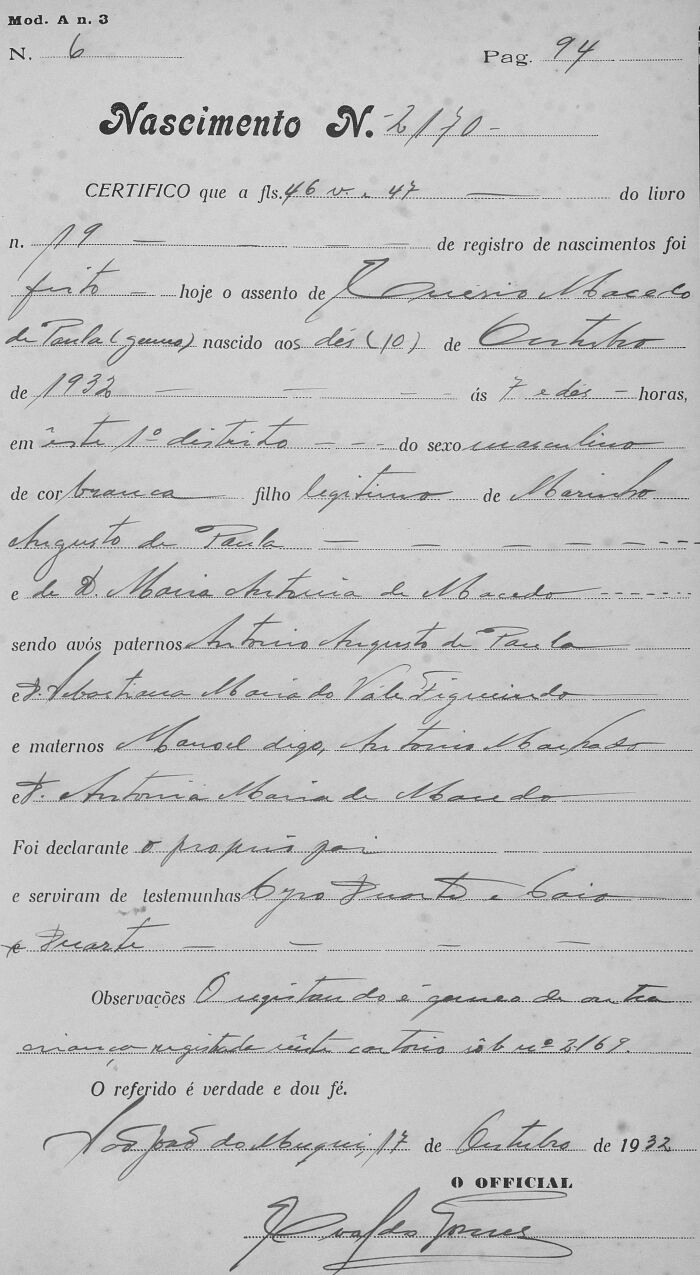 Mod. A n. 3
N. 6 Pag. 94
Nascimento N. -2170-
CERTIFICO que a fls. 46 v. e 47 do livro
n. 19 de registro de nascimentos foi
feito hoje o assento de Macedo
de Paula (gemeo) nascido aos dés (10) de Outubro
de 1932 ás 7 e dés horas,
em êste 1º distrito do sexo masculino
de cor branca filho legitimo de Marinho
Augusto de Paula
e de D. Maria Antonia de Macedo
sendo avós paternos Antonio Augusto de Paula
e D. Sebastiana Maria do Vale Figueiredo
e maternos Manoel digo, Antonio Machado
e D. Antonia Maria de Macedo
Foi declarante o proprio pai
e serviram de testemunhas Cyro Duarte e Caio
e Duarte
Observações O registando é gemeo de outra
criança registada nêste cartorio sôb nº 2169.
O referido é verdade e dou fé.
São João do Muqui, 17 de Outubro de 1932
O OFFICIAL
Gomes